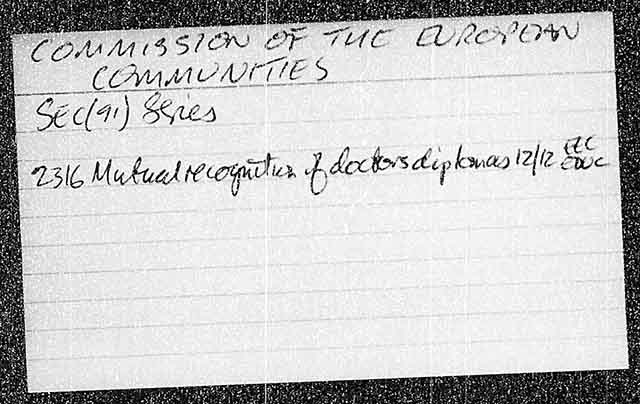 COMMISSION OF THE EUROPEAN
COMMUNITIES
SEC(91) Series
2316 Mutual recognition of doctors diplomas 12/12 EEC
EDUC